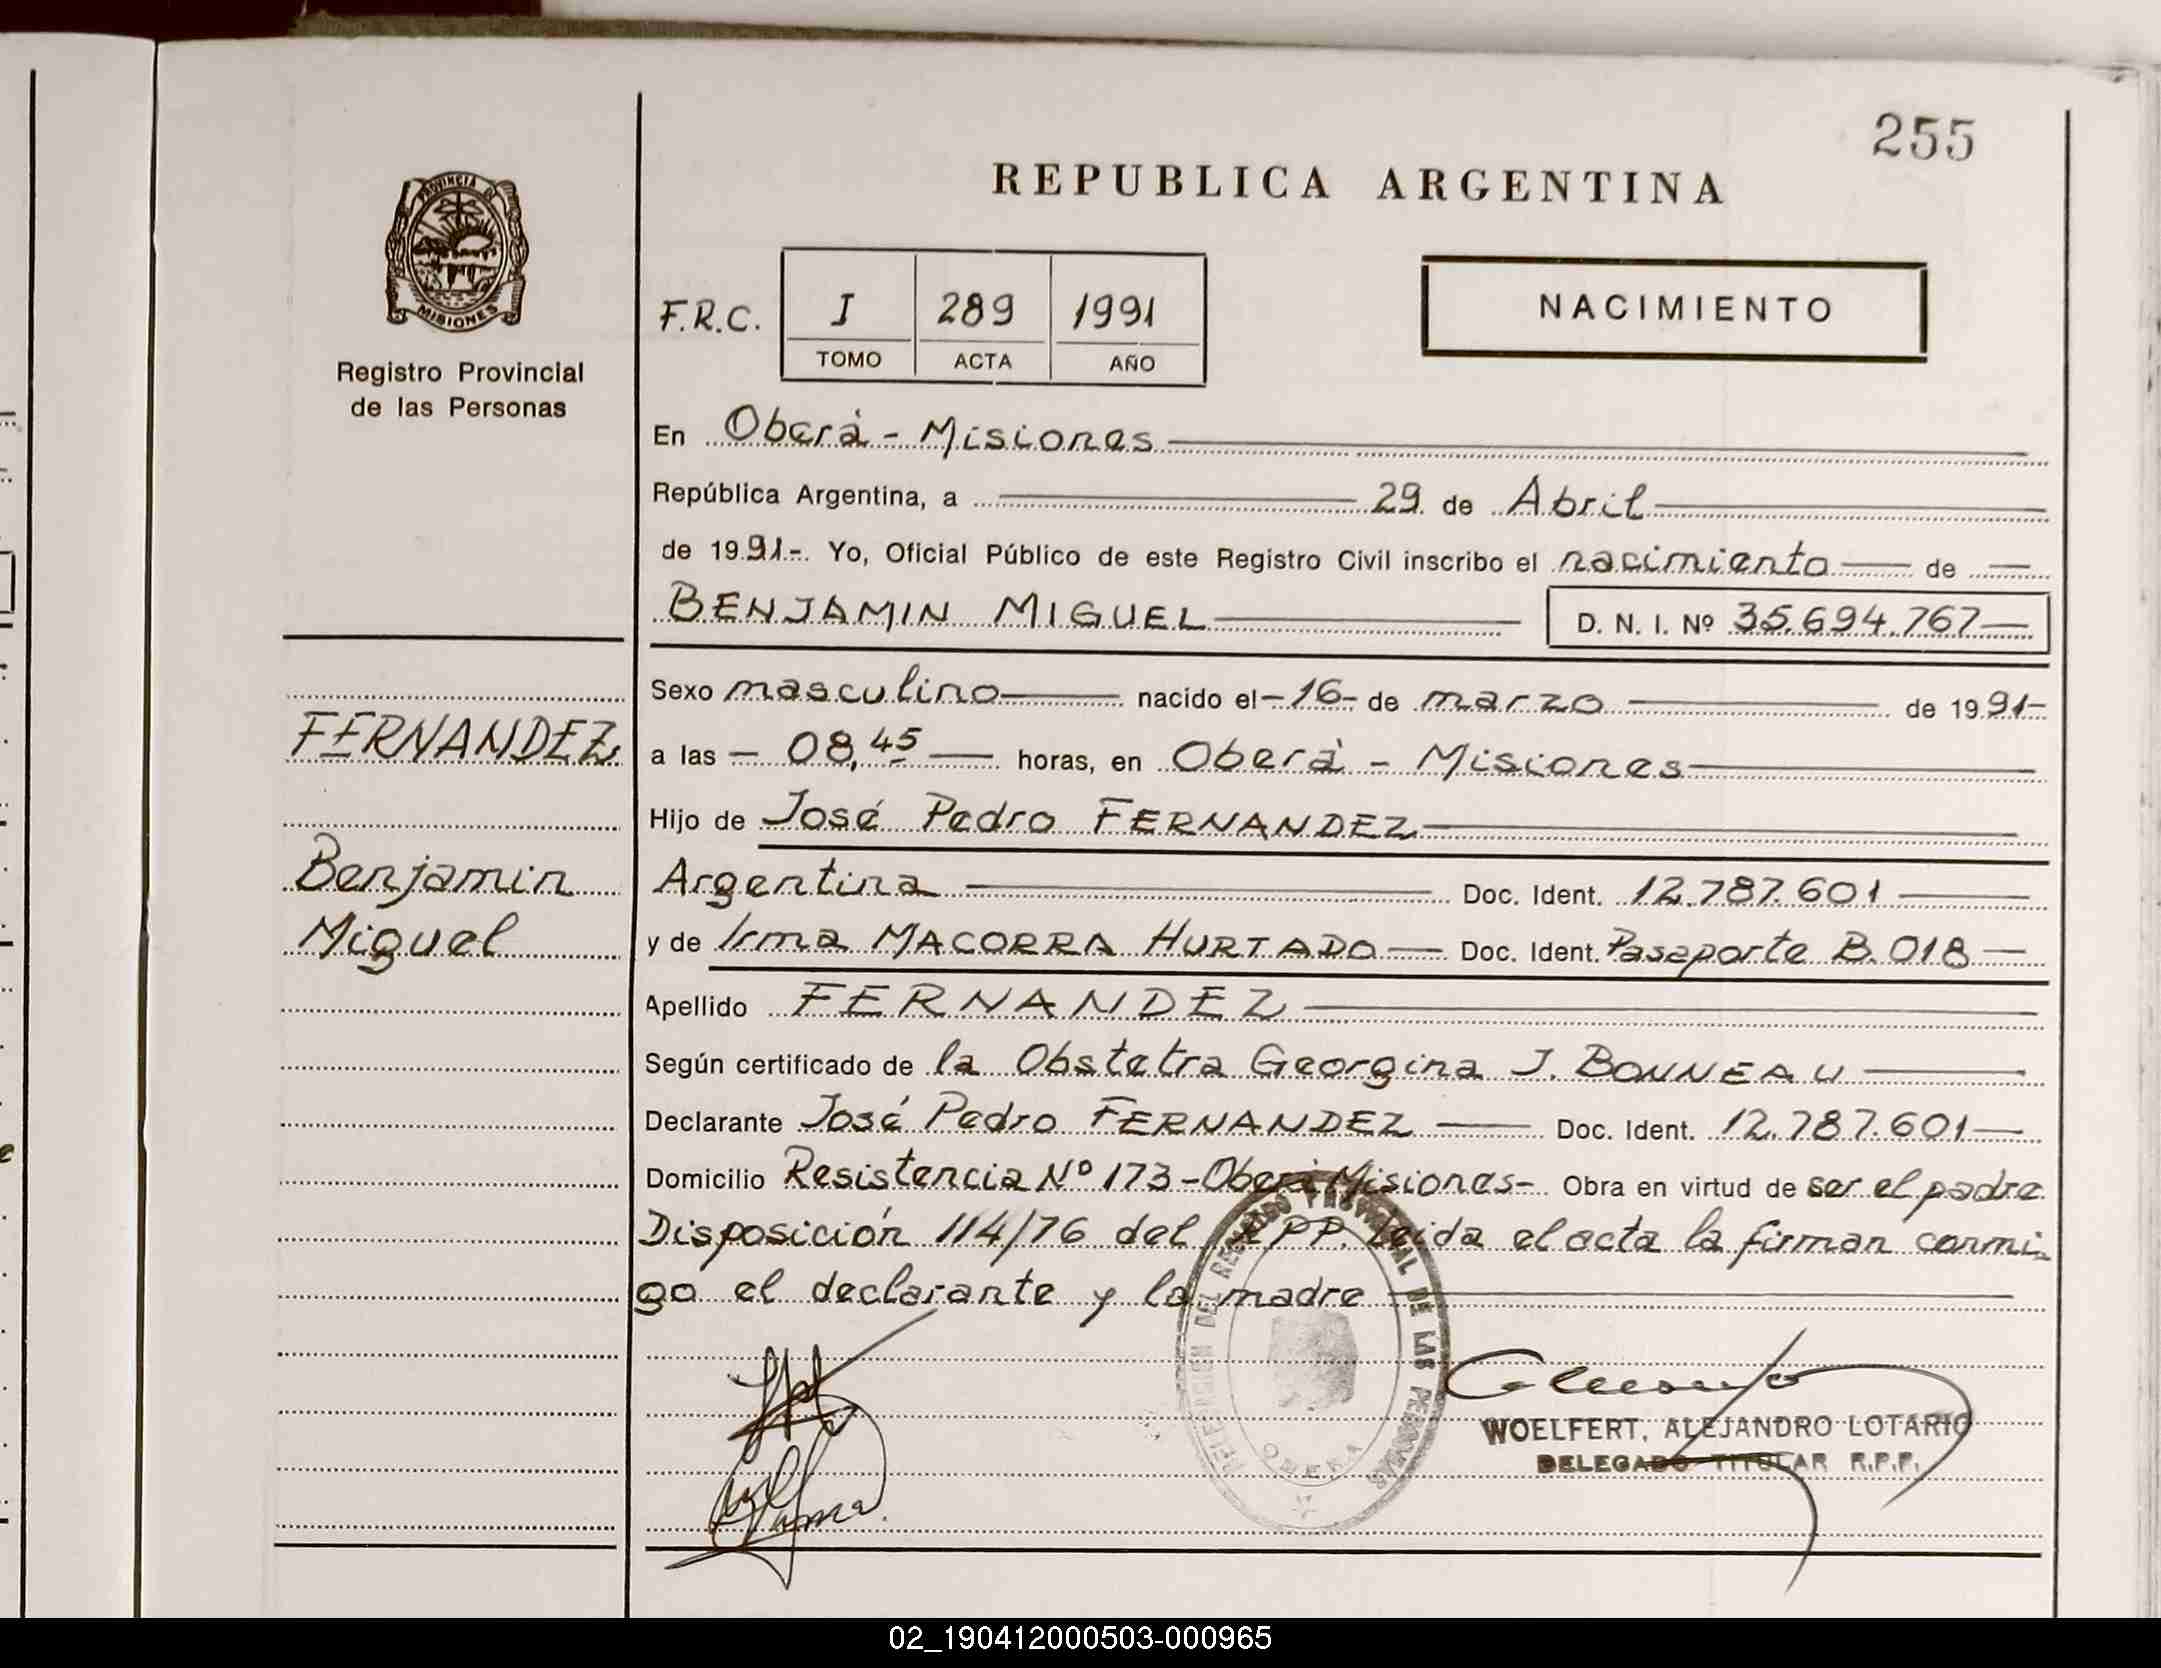 255
REPUBLICA ARGENTINA
PROVINCIA D
MISIONES
Registro Provincial
de las Personas
F.R.C. I 289 1991
TOMO ACTA AÑO
NACIMIENTO
En Oberá - Misiones
República Argentina, a 29 de Abril
de 1991-. Yo, Oficial Público de este Registro Civil inscribo el nacimiento de
BENJAMIN MIGUEL D. N. I. Nº 35.694.767
Sexo masculino nacido el -16- de marzo de 1991-
FERNANDEZ
a las - 08,45 horas, en Oberá - Misiones
Hijo de José Pedro FERNANDEZ
Benjamin
Miguel
Argentina Doc. Ident. 12.787.601
y de Irma MACORRA HURTADO Doc. Ident. Pasaporte B.018
Apellido FERNANDEZ
Según certificado de la Obstetra Georgina J. BONNEAU
Declarante José Pedro FERNANDEZ Doc. Ident. 12.787.601
Domicilio Resistencia Nº 173 - Oberá Misiones- Obra en virtud de ser el padre
Disposición 114/76 del RPP. Leida el acta la firman conmi-
go el declarante y la madre
DELEGACION DEL REGISTRO PROVINCIAL DE LAS PERSONAS
OBERA
WOELFERT, ALEJANDRO LOTARIO
DELEGADO TITULAR R.P.P.
02_190412000503-000965